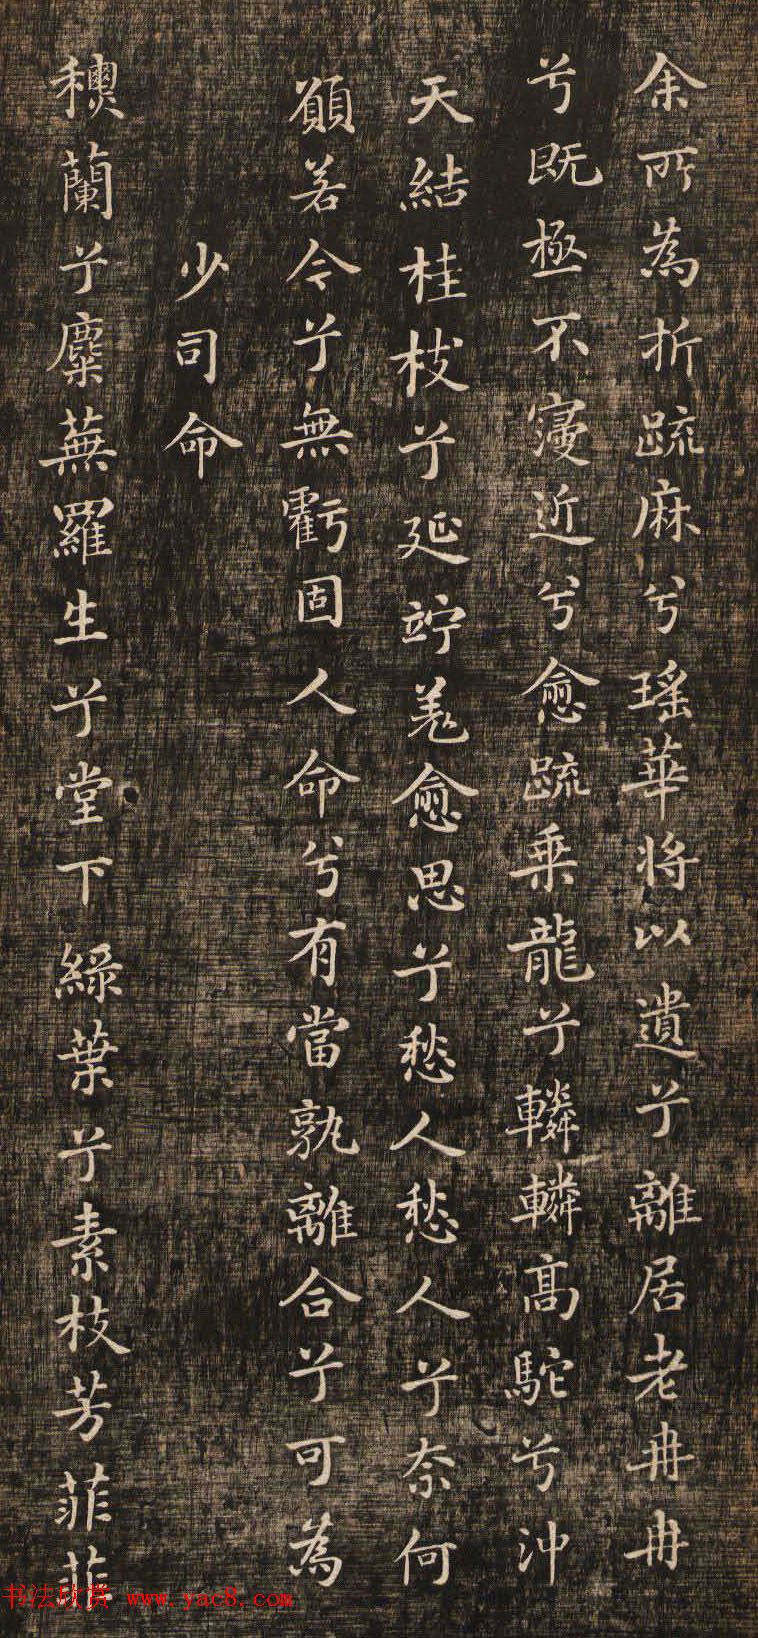 余所為折疏麻兮瑤華将以遺兮離居老冉冉
兮既極不寖近兮愈疏乗龍兮轔轔高駝兮沖
天結桂枝兮延竚羌愈思兮愁人愁人兮奈何
願若今兮無虧固人命兮有當孰離合兮可為
少司命
穓蘭兮麋蕪羅生兮堂下緑葉兮素枝芳菲菲
书法欣赏 www.yac8.com